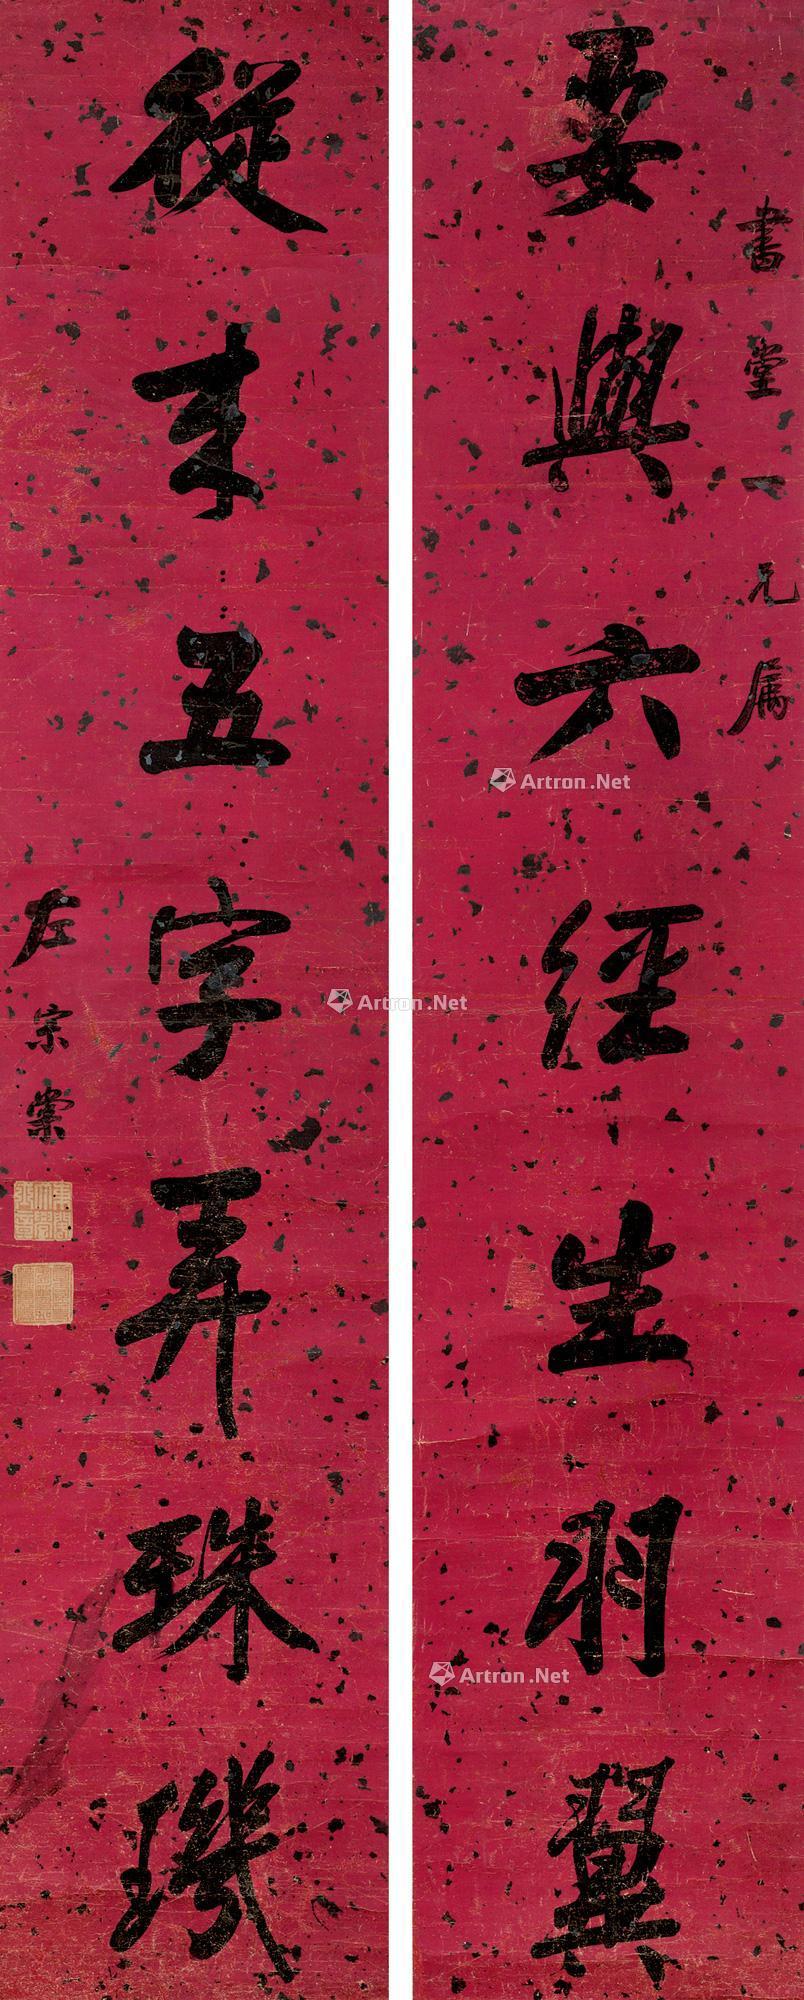 書堂一兄属
要與六經生羽翼
從來五字弄珠璣
左宗棠
Artron.Net
Artron.Net
Artron.Net